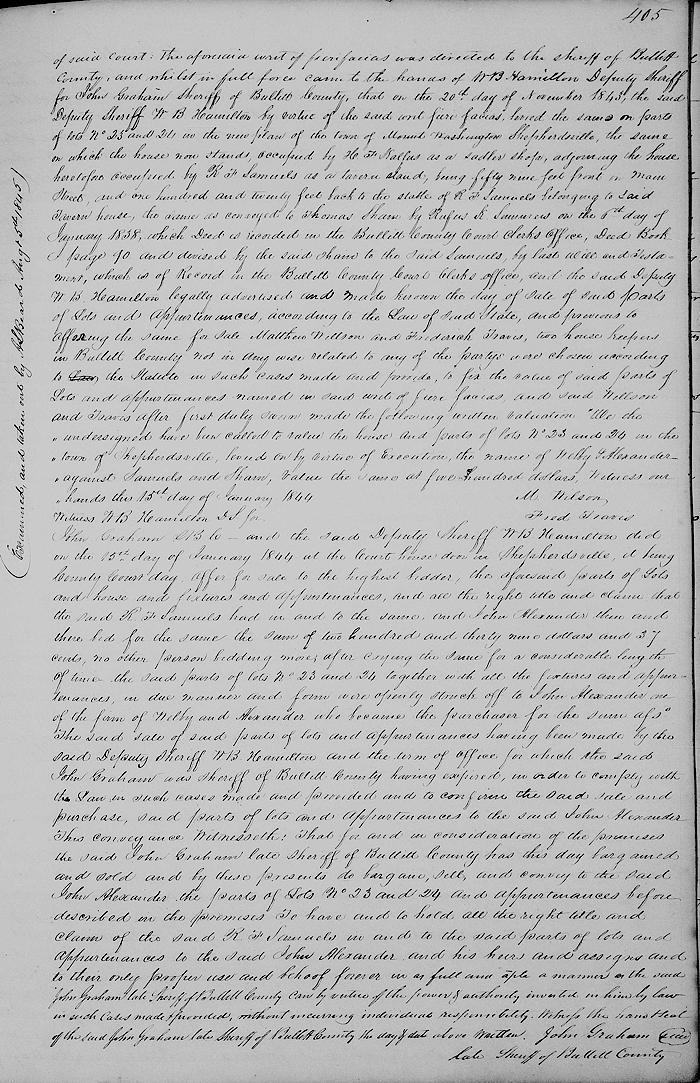 405
of said Court: The aforesaid writ of fierifacias was directed to the sheriff of Bullitt
County, and whilst in full force came to the hands of W B Hamilton Deputy Sheriff
for John Graham Sheriff of Bullitt County, that on the 20th day of November 1843, the said
Deputy Sheriff W B Hamilton by virtue of the said writ fiere facias, levied the same on parts
of lots No 23 and 24 in the new plan of the town of Mount Washington Shepherdsville, the same
on which the house now stands, occupied by H F Kalfus as a sadler shop, adjoining the house
heretofore occupied by R F Samuels as a tavern stand, being fifty nine feet front on Main
Street, and one hundred and twenty feet back to the stable of R F Samuels belonging to said
Tavern house, the same as conveyed to Thomas Sham by Rufus K Summers on the 8th day of
January 1838, which Deed is recorded in the Bullitt County Court Clerks Office, Deed Book
I page 90 and devised by the said Sham to the said Samuels, by last Will and Testa-
ment, which is of Record in the Bullitt County Court Clerks office, and the said Deputy
W B Hamilton legally advertised and made known the day of sale of said parts
of Lots and appurtenances, according to the Law of said State, and previous to
offering the same for sale Matthew Willson and Frederich Travis, two house keepers
in Bullitt County not in any wise related to any of the partys were chosen according
to the Statute in such cases made and provide, to fix the value of said parts of
Lots and appurtenances named in said writ of fiere facias, and said Willson
and Travis after first duly sworn made the following written valuation "We the
"undersigned have been called to value the house and parts of lots No 23 and 24 in the
"town of Shepherdsville, levied on by virtue of Execution, the name of Welby & Alexander
"against Samuels and Sham, Value the same at five hundred dollars, Witness our
"hands this 15th day of January 1844 M. Wilson
Witness W B Hamilton D S for Fred Travis
John Graham S B C – and the said Deputy Sheriff W B Hamilton did
on the 15th day of January 1844 at the Court house door in Shepherdsville, it being
County Court day, offer for sale to the highest bidder, the aforesaid parts of Lots
and house and fixtures and appurtenances, and all the right title and claim that
the said R F Samuels had in and to the same, and John Alexander then and
there bid for the same the sum of two hundred and thirty nine dollars and 37
cents, no other person bidding more, after crying the same for a considerable length
of time the said parts of lots No 23 and 24 together with all the fixtures and appur-
tenances, in due manner and form were openly struck off to John Alexander one
of the firm of Welby and Alexander who became the purchaser for the sum afsd
The said sale of said parts of lots and appurtenances having been made by the
said Deputy Sheriff W B Hamilton and the term of office for which the said
John Graham was Sheriff of Bullitt County having expired, in order to comply with
the Law in such cases made and provided and to confirm the said sale and
purchase, said parts of lots and appurtenances to the said John Alexander
This conveyance Witnesseth: That for and in consideration of the premises
the said John Graham late Sheriff of Bullitt County has this day bargained
and sold and by these presents do bargane, sell, and convey to the said
John Alexander the parts of Lots No 23 and 24 and appurtenances before
described in the premises To have and to hold all the right title and
claim of the said R F Samuels in and to the said parts of lots and
appurtenances to the said John Alexander and his heirs and assigns and
to their only propper use and behoof forever in as full and aple a manner as the said
John Graham late Sheriff of Bullitt County can by virtue of the power & authority invested in him by law
in such Cases made & provided, without incurring individual responsibility. Witness the hand & seal
of the said John Graham late Sheriff of Bullitt County the day & date above Written. John Graham Seal
Late Sheriff of Bullitt County
(Examined, and taken out by Augt 5th 1845)